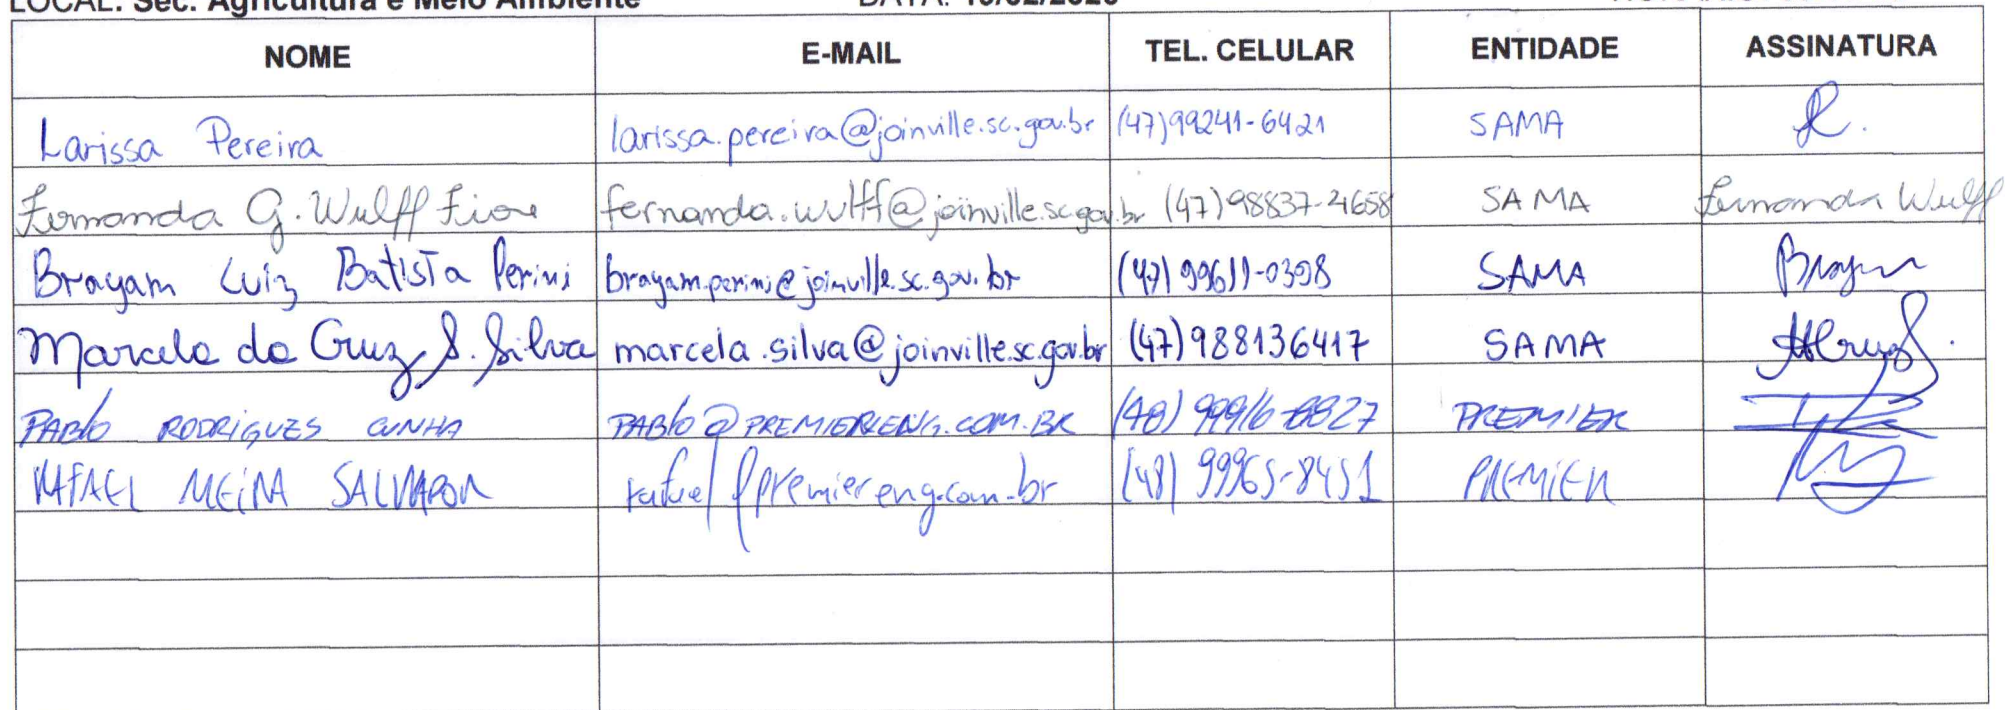 LOCAL: Sec. Agricultura e Meio Ambiente DATA:
NOME E-MAIL TEL. CELULAR ENTIDADE ASSINATURA
Larissa Pereira larissa.pereira@joinville.sc.gov.br (47)99241-6421 SAMA
Fernanda G. Wulff Fiore fernanda.wulff@joinville.sc.gov.br (47)98837-4658 SAMA Fernanda Wulff
Brayam Luiz Batista Perini brayam.perini@joinville.sc.gov.br (47) 99611-0398 SAMA Brayam
Marcela da Cruz S. Silva marcela.silva@joinville.sc.gov.br (47)988136417 SAMA
PABlO RODRIGUES CUNHA PABlO@PREMIERENG.COM.BR (48) PREMIER
RAFAEL MEIRA SALVADOR rafael@premiereng.com.br (48) 99965-8451 PREMIER